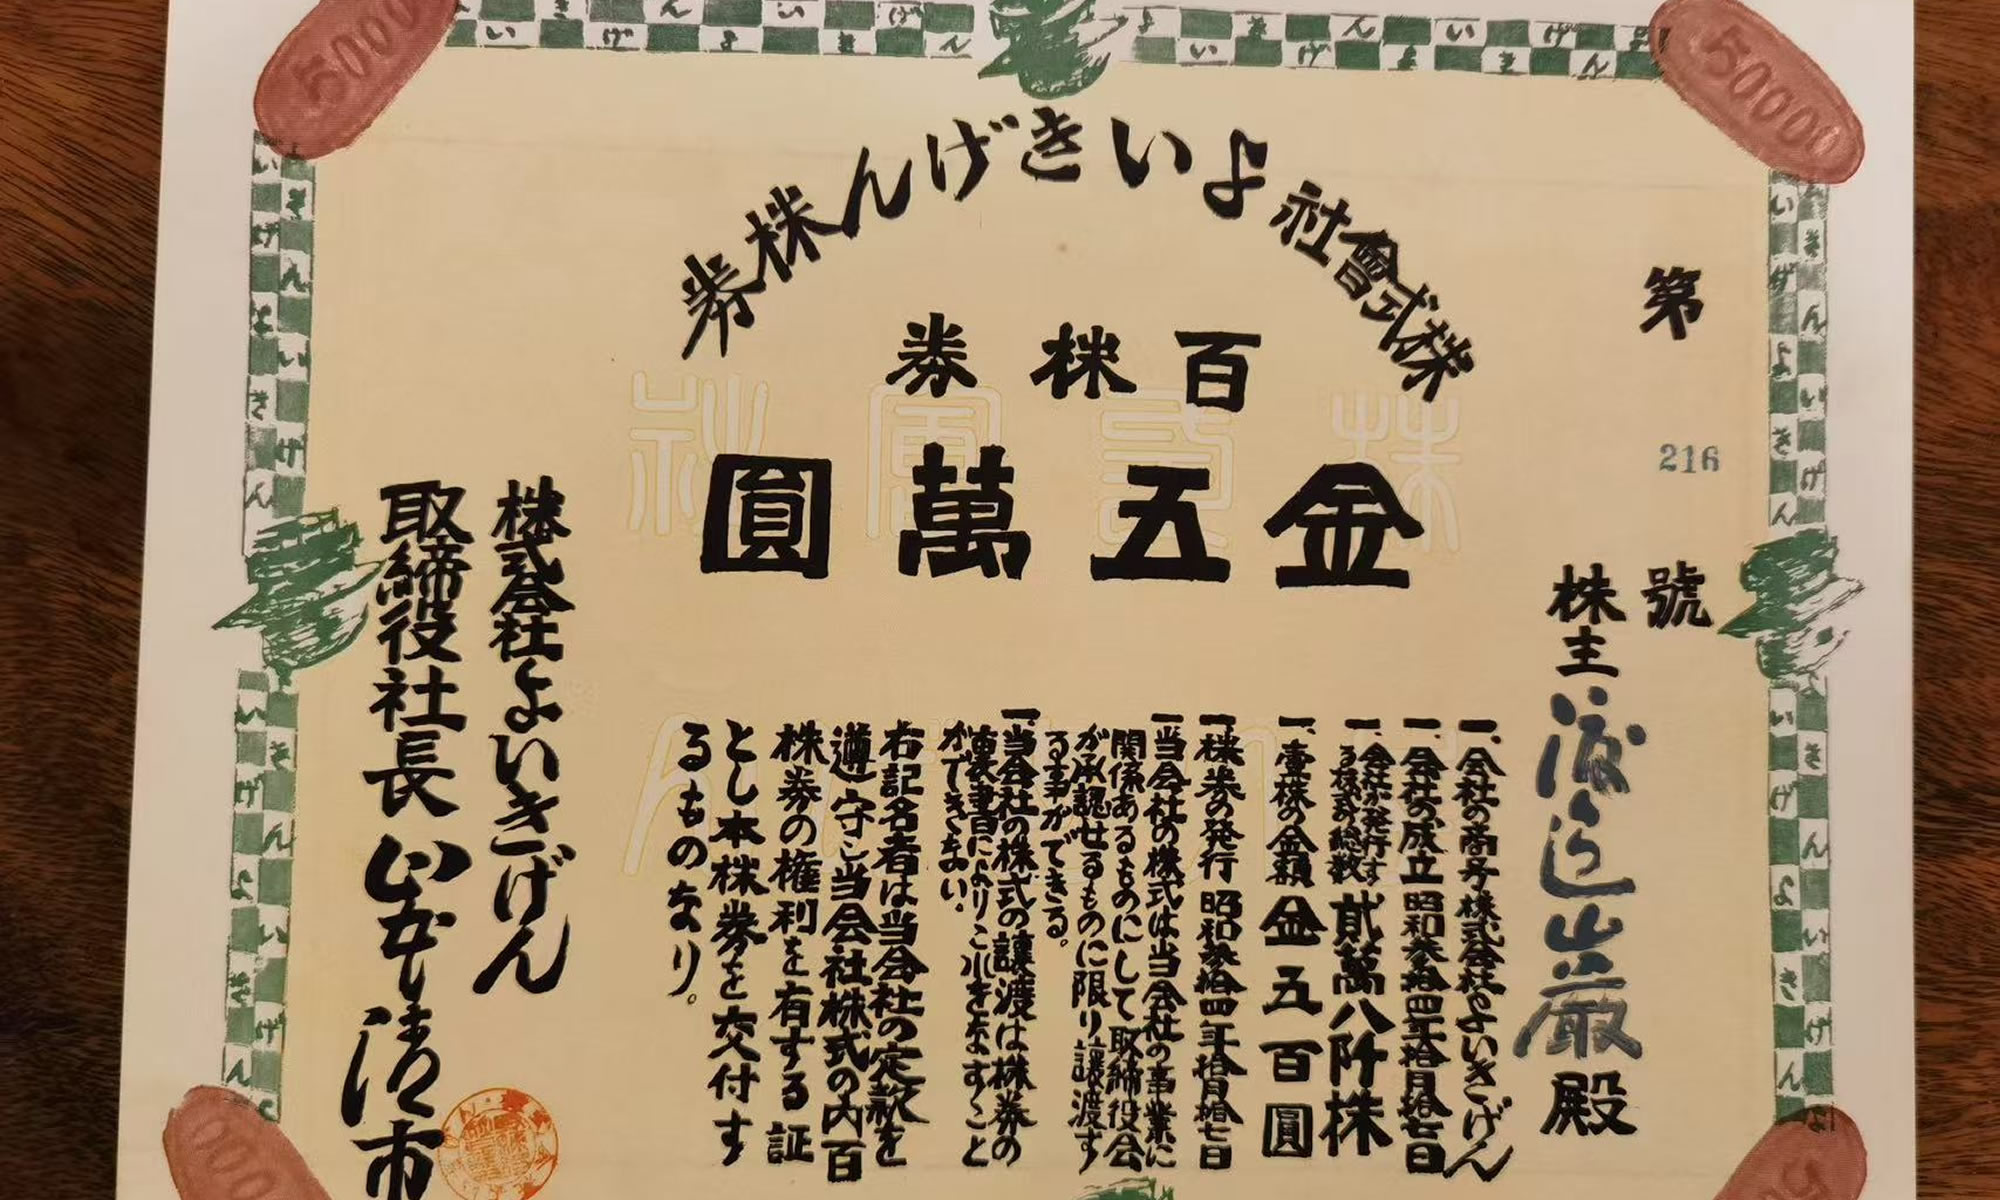 株式會社よいきげん株券
百株券
金五萬圓
第
216
號
株主
殿
一、会社の商号株式会社よいきげん
一、会社の成立昭和参拾四年拾月拾七日
一、会社が発行する株式の総数貮萬八阡株
一、壹株の金額金五百圓
一、株券の発行昭和参拾四年拾月拾七日
一、当会社の株式は当会社の事業に
関係あるものにして取締役会
が承認せるものに限り譲渡す
る事ができる。
一、当会社の株式の譲渡は株券の
裏書によりこれをなすこと
ができない。
右記名者は当会社の定款を
遵守し当会社株式の内百
株券の権利を有する証
とし本株券を交付す
るものなり。
株式会社よいきげん
取締役社長
清市
50000